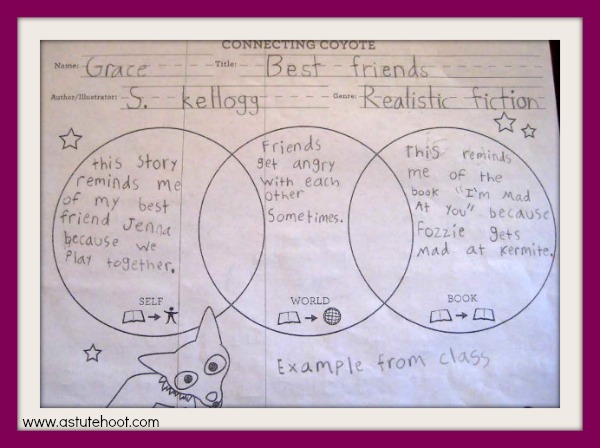 CONNECTING COYOTE
Name: Grace Title: Best friends
Author/Illustrator: S. kellogg Genre: Realistic fiction
this story
reminds me
of my best
friend Jenna
because we
play together.
SELF
Friends
get angry
with each
other
Sometimes.
WORLD
This reminds
me of the
book "I'm Mad
At You" because
Fozzie gets
mad at kermite.
BOOK
Example from class
www.astutehoot.com